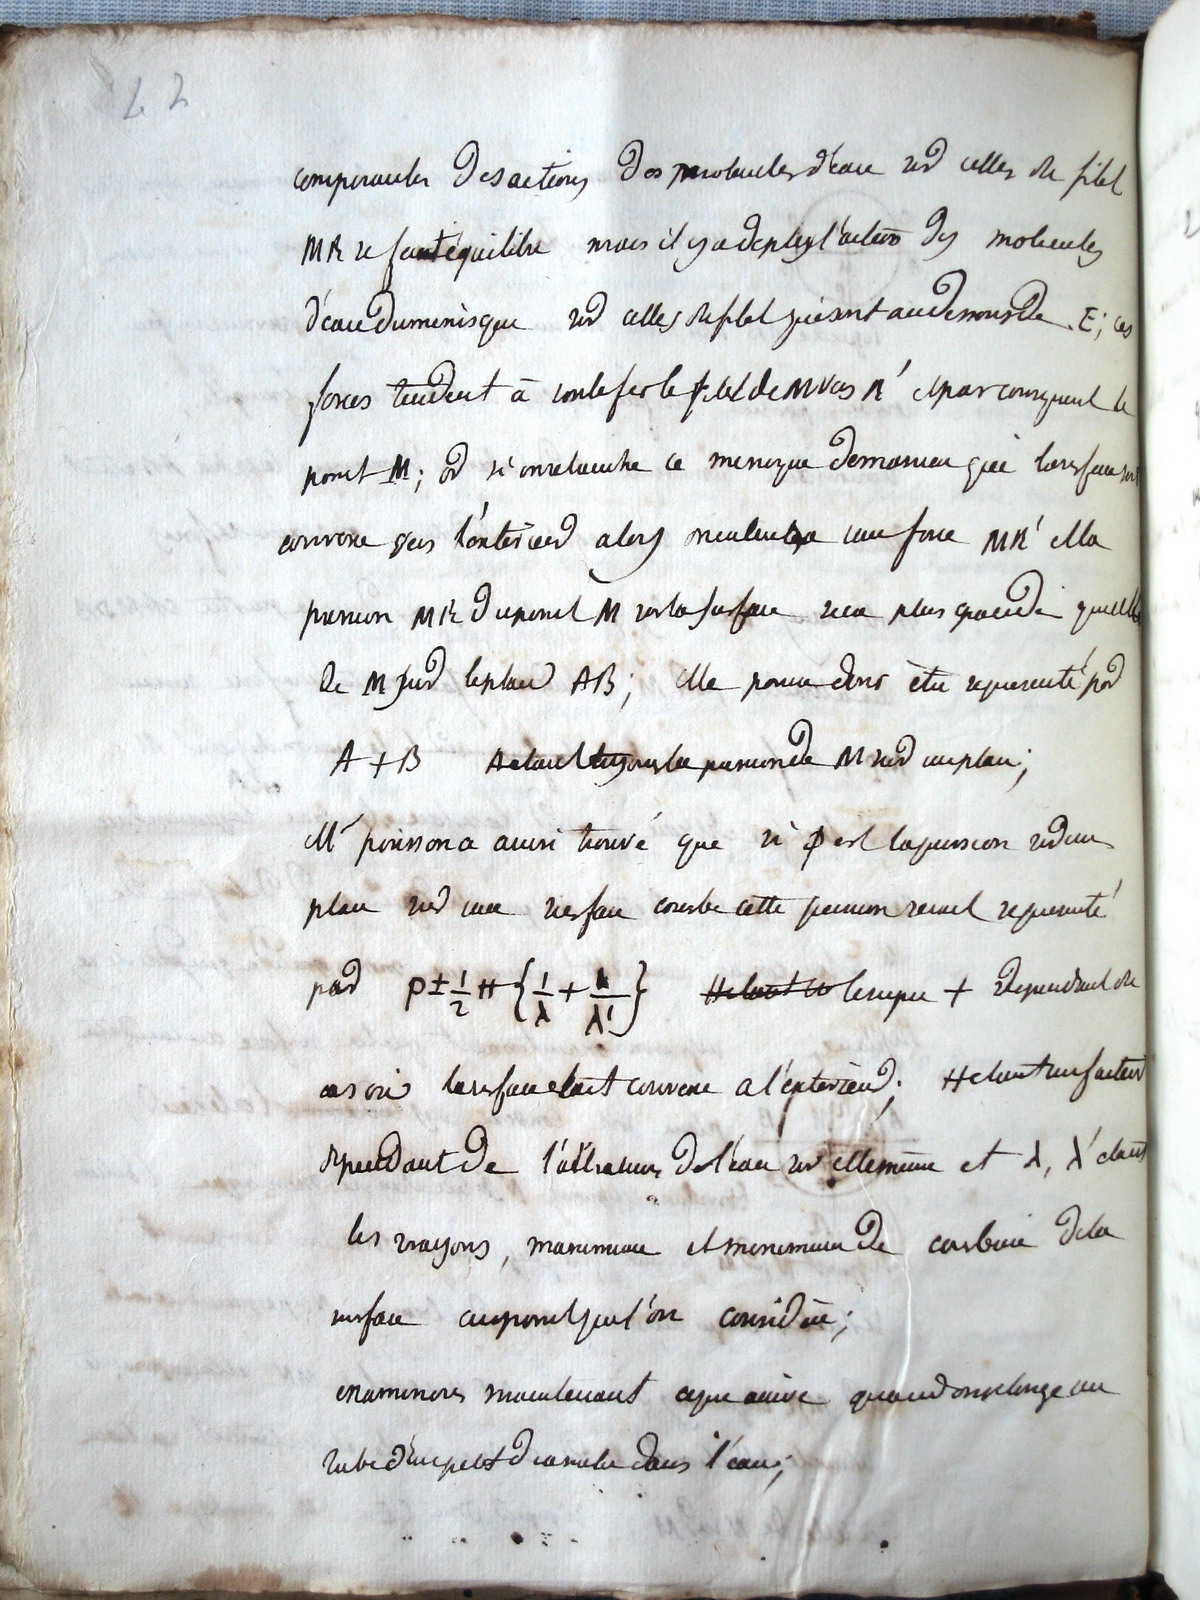 42
composantes des actions des molecules d'eau sur celles du filet
MR se font équilibre mais il y a de plus l'action des molecules
d'eau du menisque sur celles du filet qui sont au dessous de E; ces
forces tendent à soulever le filet de M vers R' et par consequent le
point M; or si on retranche ce menisque de maniere que la surface soit
convexe vers l'exterieur alors on enlevera une force MR' et la
pression MR du point M vers la surface sera plus grande que celle
de M sur le plan AB; elle pourra donc être representé par
A + B A etant toujours la pression de M sur un plan;
Mr poisson a aussi trouvé que si p est la pression sur un
plan sur une surface courbe cette pression serait representé
par p ± 1/2 H {1/λ + 1/λ'} H etant le signe + dependant du
cas où la surface etait convexe a l'exterieur; H etant un facteur
dependant de l'attraction de l'eau sur elle même et λ, λ' etant
les rayons, maximum et minimum de courbure de la
surface au point que l'on considère;
examinons maintenant ce qui arrive quand on plonge un
tube d'un petit diametre dans l'eau;